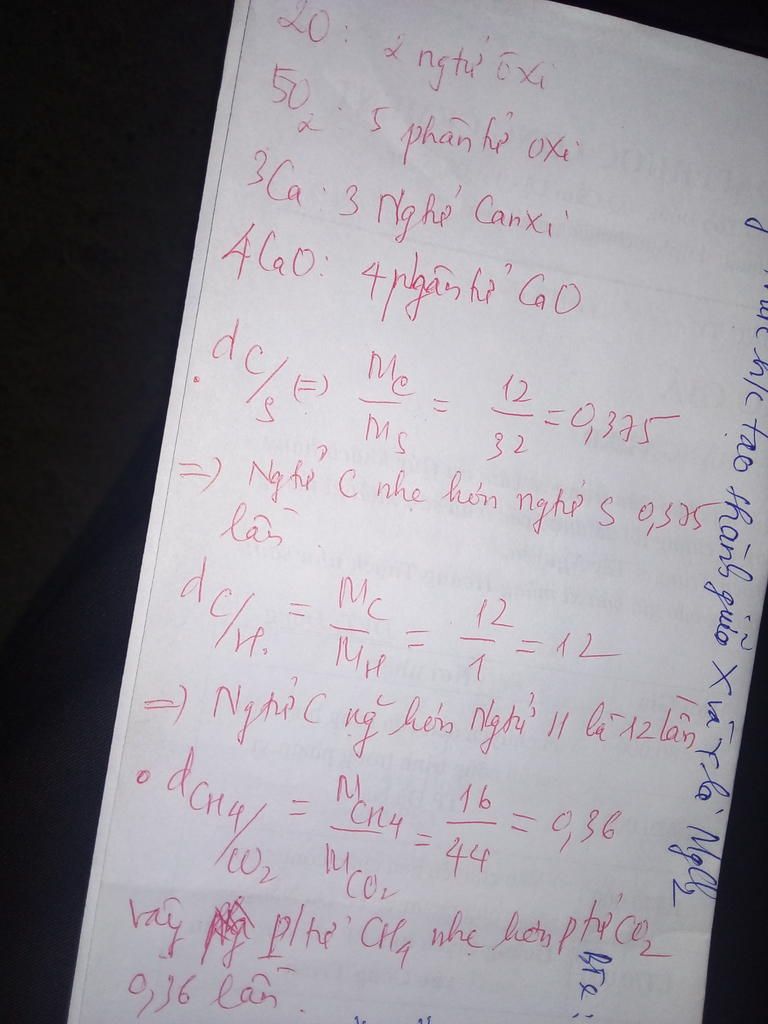 2O: 2 ngtử ôxi
5O₂: 5 phân tử oxi
3Ca: 3 Ngtử Canxi
4CaO: 4 phân tử CaO
. d C/S (=) M_C/M_S = 12/32 = 0,375
=) Ngtử C nhẹ hơn ngtử S 0,375
lần
d C/H. = M_C/M_H = 12/1 = 12
=) Ngtử C nặ hơn Ngtử H là 12 lần
• d CH4/CO2 = M_CH4/M_CO2 = 16/44 = 0,36
vậy p/tử CH4 nhẹ hơn ptử CO2
0,36 lần.
h/c tạo thành giữa X và Y là MgCl2
BT2: